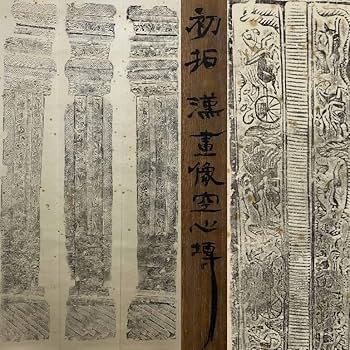 初拓漢畫像空心塼